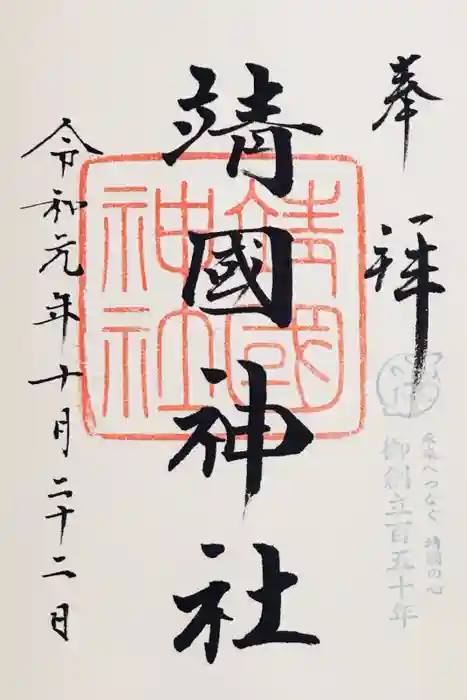 奉拝
未来へつなぐ靖國の心
御創立百五十年
靖國神社
靖國神社
令和元年十月二十二日